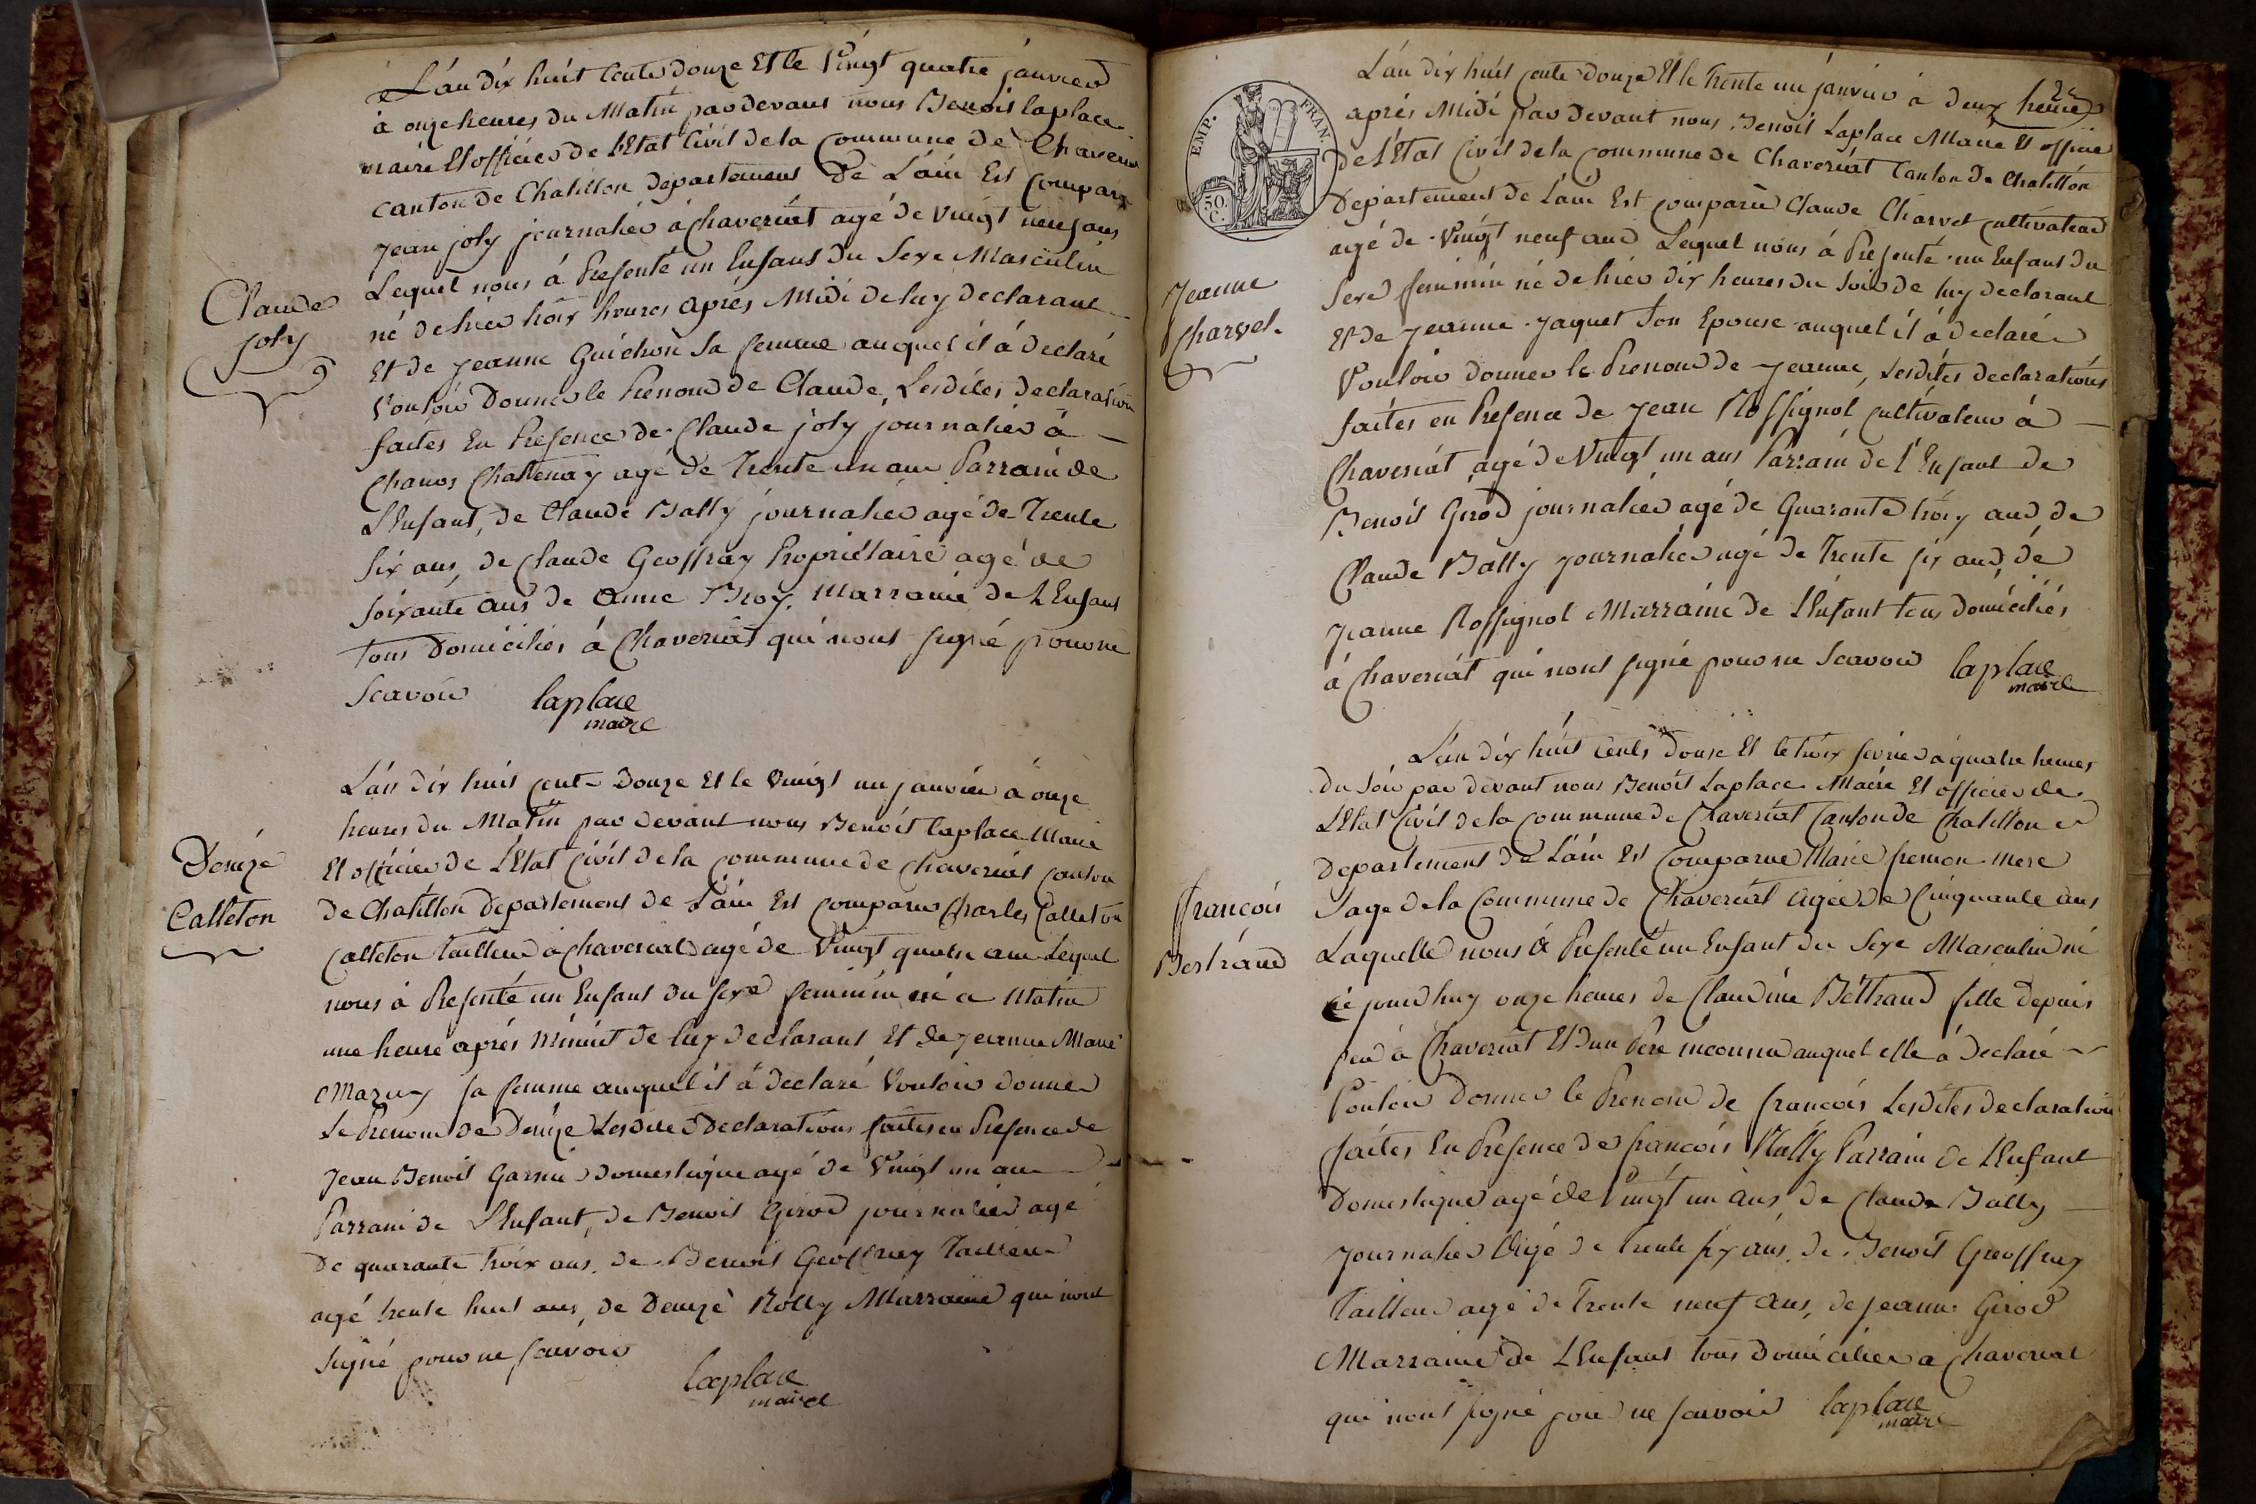 L'án dix huit Cents douze Et le Vingt quatre janvier
à onze heures du Matin par devant nous Benoit laplace
maire Et officier de L'Etat Civil de la Commune de Chaveriat
canton de Chatillon departement de L'ain Est Comparu
jean joly journalier à Chaveriat agé de Vingt neuf ans
Lequel nous á Presenté un Enfant du Sexe Masculin
né de hier troix heures aprés Midi de luy declarant
Et de jeanne Guichon Sa femme auquel il á declaré
Vouloir Donner le Prenom de Claude, Lesdites declaration
faites En Presence de Claude joly journalier à
Chanos Chatenay agé de Trente un ans Parrain de
L'Enfant, de Claude Bally journalier agé de Trente
Six ans, de Claude Geoffray Propriétaire agé de
Soixante ans de Anne Broy. Marraine de L'Enfant
tous Domiciliés á Chaveriat qui nont signé pour ne
Scavoir laplace
maire
Claude
joly
L'an dix huit cents Douze Et le Vingt un janvier à onze
heures du Matin par devant nous Benoit laplace Maire
Et officier de L'Etat Civil de la Commune de Chaveriat Canton
de Chatillon departement de L'ain Est comparu Charles Calleton
Calleton tailleur à Chaveriat agé de Vingt quatre ans Lequel
nous à Presenté un Enfant du sexe feminin né ce Matin
une heure aprés Minuit de luy declarant Et de jeanne Marie
sa femme auquel il á declaré Vouloir donner
Le Prenom de Denize Lesdites Declarations faites en Presence de
Jean Benoit Garnié domestique agé de Vingt un ans
Parrain de L'Enfant, de Benoit Girod journalier agé
De quarante troix ans, de Benoit Geoffray Tailleur
agé trente huit ans, de Denize Rolly Marraine qui nont
signé pour ne scavoir
laplace
maire
Denize
Calleton
EMP. FRAN.
50
C.
22
L'an dix huit cents Douze Et le Trente un janvier à deux heures
aprés Midi par devant nous Benoit Laplace Maire Et officier
de L'Etat Civil de la Commune de Chaveriat Canton de Chatillon
Departement de L'ain Est comparu Claude Charvet Cultivateur
agé de Vingt neuf ans Lequel nous à Presenté un Enfant du
Sexe feminin né de hier dix heures du Soir de luy declarant
Et de jeanne jaquet Son Epouse auquel il á declaré
Vouloir donner le Prenom de jeanne, Lesdites declarations
faites en Presence de jean Rossignol Cultivateur à
Chaveriat agé de Vingt un ans Parrain de L'Enfant de
Benoit Girod journalier agé de Quarante troix ans, de
Claude Bally journalier agé de Trente six ans, de
Jeanne Rossignol Marraine de L'Enfant tous Domiciliés
á Chaveriat qui nont signé pour ne Scavoir laplace
maire
Jeanne
Charvet.
L'an dix huit Cents Douse Et le troix fevrier à quatre heures
du Soir par devant nous Benoit Laplace Maire Et officier de
L'Etat Civil de la Commune de Chaveriat Canton de Chatillon
departement de L'ain Est Comparue Marie fremon mere
Sage de la Commune de Chaveriat Agée de Cinquante ans
Laquelle nous á Presenté un Enfant du Sexe Masculin né
ce jourd'huy onze heures de Claudine Béttrand fille depuis
peu à Chaveriat Et d'un Pere inconnu auquel elle á Declaré
Vouloir Donner le Prenom de françois Lesdites declaration
faites En Presence de francois Parrain de L'Enfant
Domestique agé de Vingt un ans, de Claude Bally
Journalier Agé de trente six ans, de Benoit Geoffray
Tailleur agé de Trente neuf ans, de jeanne Girod
Marraine de L'Enfant tous Domiciliés a Chaveriat
qui nont signé pour ne scavoir laplace
maire
françois
Bertrand